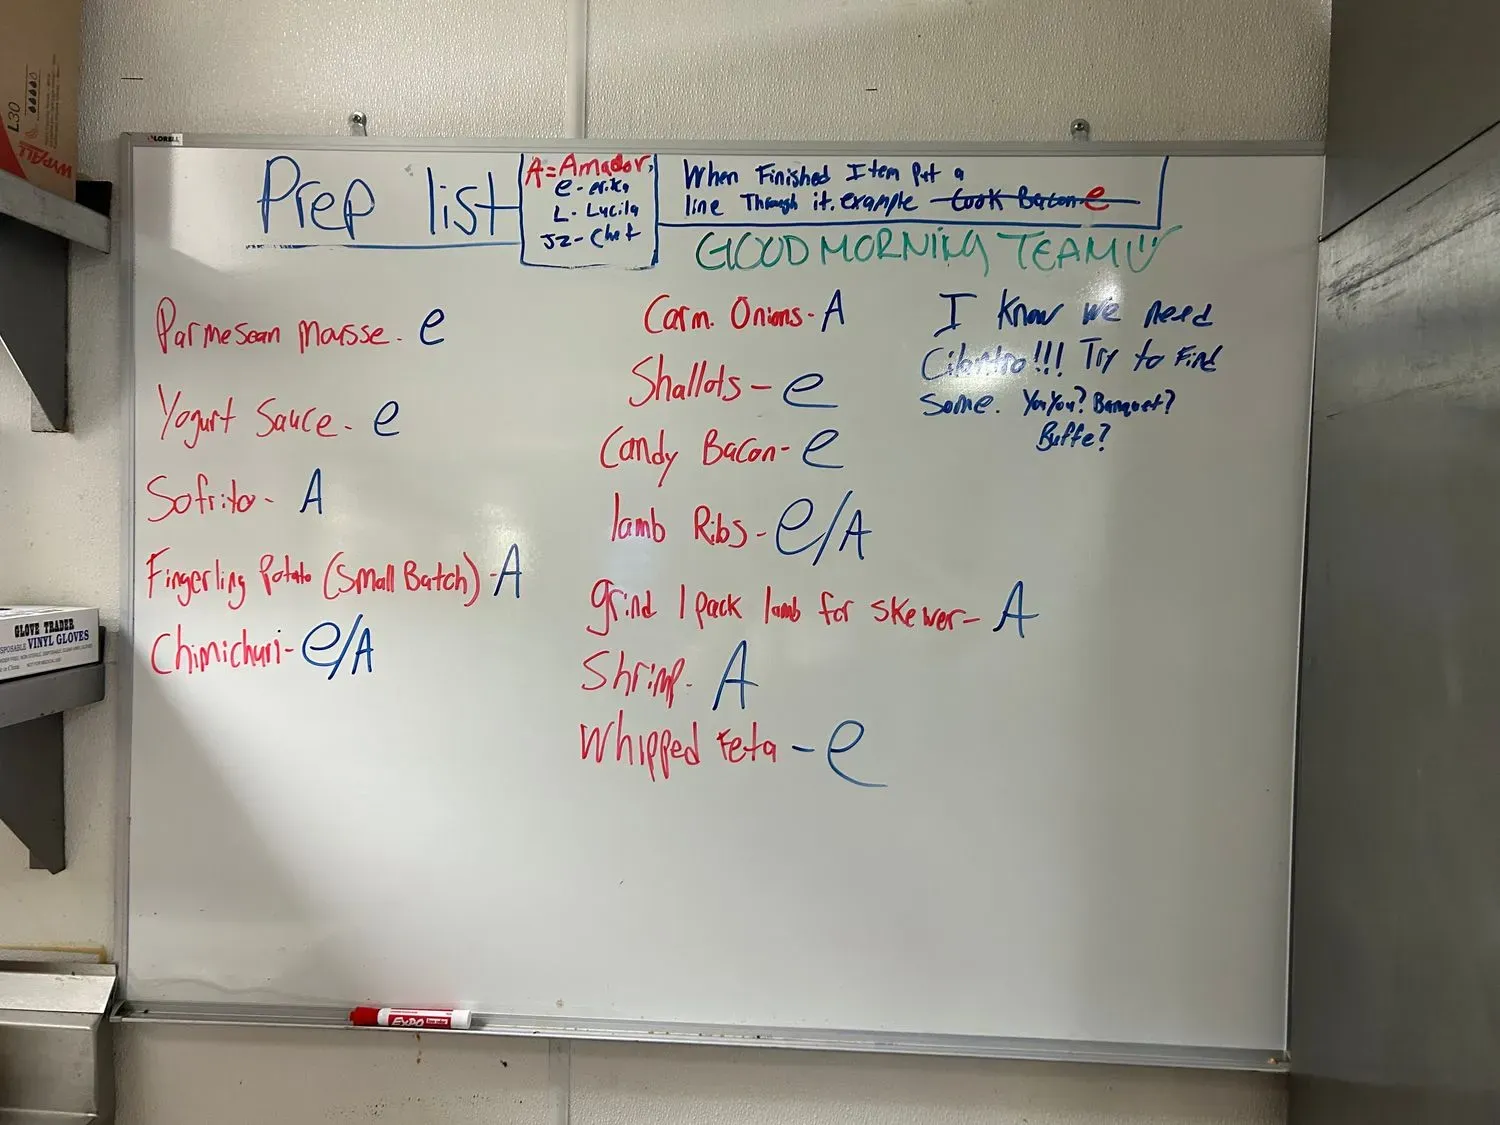 Prep list
A=Amador,
e-erika
L-Lucila
JZ-Chef
When Finished Item Put a
line Through it. example Cook Bacon e
GOOD MORNING TEAM
Parmesean Mousse- e
Yogurt Sauce- e
Sofrito- A
Fingerling Potato (Small Batch)-A
Chimichuri- e/A
Carm. Onions- A
Shallots- e
Candy Bacon- e
lamb Ribs- e/A
grind 1 pack lamb for skewer- A
Shrimp- A
Whipped Feta - e
I Know We need
Cilantro!!! Try to Find
Some. YouYou? Banquet?
Buffe?
LORELL
L30
WYPALL
GLOVE TRADER
VINYL GLOVES
EXPO